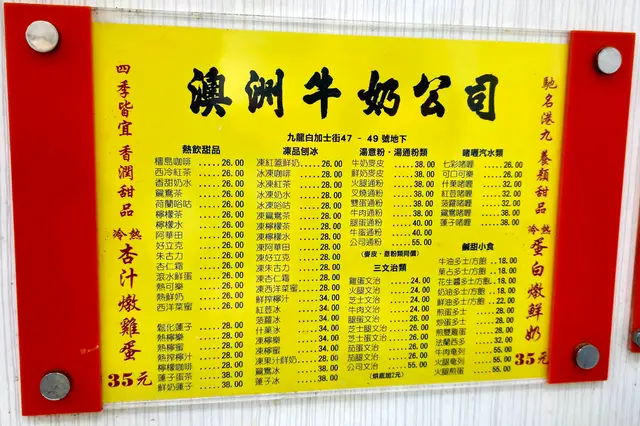 澳洲牛奶公司
九龍白加士街47 - 49 號地下
四季皆宜 香潤甜品
冷熱 杏汁燉雞蛋
35元
熱飲甜品
檀島咖啡 ..... 26.00
西冷紅茶 ..... 26.00
香甜奶水 ..... 26.00
鴛鴦茶 ..... 26.00
荷蘭唂咕 ..... 26.00
檸檬茶 ..... 26.00
檸檬水 ..... 26.00
阿華田 ..... 28.00
好立克 ..... 28.00
朱古力 ..... 28.00
杏仁霜 ..... 28.00
滾水鮮蛋 ..... 26.00
熱可樂 ..... 28.00
熱鮮奶 ..... 28.00
西洋菜蜜 ..... 28.00
鬆化蓮子 ..... 28.00
熱檸樂 ..... 28.00
熱檸蜜 ..... 28.00
熱撈檸汁 ..... 28.00
檸檬咖啡 ..... 28.00
蓮子蛋茶 ..... 38.00
鮮奶蓮子 ..... 38.00
凍品刨冰
凍紅蓋鮮奶 ..... 26.00
冰凍咖啡 ..... 28.00
冰凍紅茶 ..... 28.00
冰凍奶水 ..... 28.00
冰凍唂咕 ..... 28.00
凍鴛鴦茶 ..... 28.00
凍檸檬茶 ..... 28.00
凍檸檬水 ..... 28.00
凍阿華田 ..... 28.00
凍好立克 ..... 28.00
凍朱古力 ..... 28.00
凍杏仁霜 ..... 28.00
凍西洋菜蜜 ..... 28.00
鮮撈檸汁 ..... 34.00
紅荳冰 ..... 34.00
菠蘿冰 ..... 34.00
什菓冰 ..... 34.00
凍檸樂 ..... 34.00
凍檸蜜 ..... 34.00
凍果汁鮮奶 ..... 28.00
鴛鴦冰 ..... 38.00
蓮子冰 ..... 38.00
湯意粉．湯通粉類
牛奶麥皮 ..... 38.00
鮮奶麥皮 ..... 38.00
火腿通粉 ..... 38.00
叉燒通粉 ..... 38.00
雙蛋通粉 ..... 38.00
牛肉通粉 ..... 38.00
腿蛋通粉 ..... 40.00
牛蛋通粉 ..... 40.00
公司通粉 ..... 55.00
(麥皮、意粉類同價)
三文治類
雞蛋文治 ..... 24.00
火腿文治 ..... 24.00
芝士文治 ..... 24.00
牛肉文治 ..... 24.00
腿蛋文治 ..... 26.00
芝士腿文治 ..... 26.00
芝士蛋文治 ..... 26.00
茄蛋文治 ..... 26.00
茄腿文治 ..... 26.00
公司文治 ..... 55.00
(烘底加2元)
啫喱汽水類
七彩啫喱 ..... 26.00
可口可樂 ..... 26.00
什菓啫喱 ..... 32.00
紅荳啫喱 ..... 32.00
菠蘿啫喱 ..... 32.00
鴛鴦啫喱 ..... 38.00
蓮子啫喱 ..... 38.00
鹹甜小食
牛油多士/方飽 . 18.00
菓占多士/方飽 . 18.00
花生醬多士/方飽 . 18.00
奶油多士/方飽 . 18.00
鮮油多士/方飽 . 22.00
煎蛋多士 ..... 28.00
炒蛋多士 ..... 28.00
煎雙雞蛋 ..... 28.00
法蘭西多 ..... 32.00
牛肉奄列 ..... 55.00
火腿奄列 ..... 55.00
火腿煎蛋 ..... 55.00
馳名港九 養顏甜品
冷熱 蛋白燉鮮奶
35元